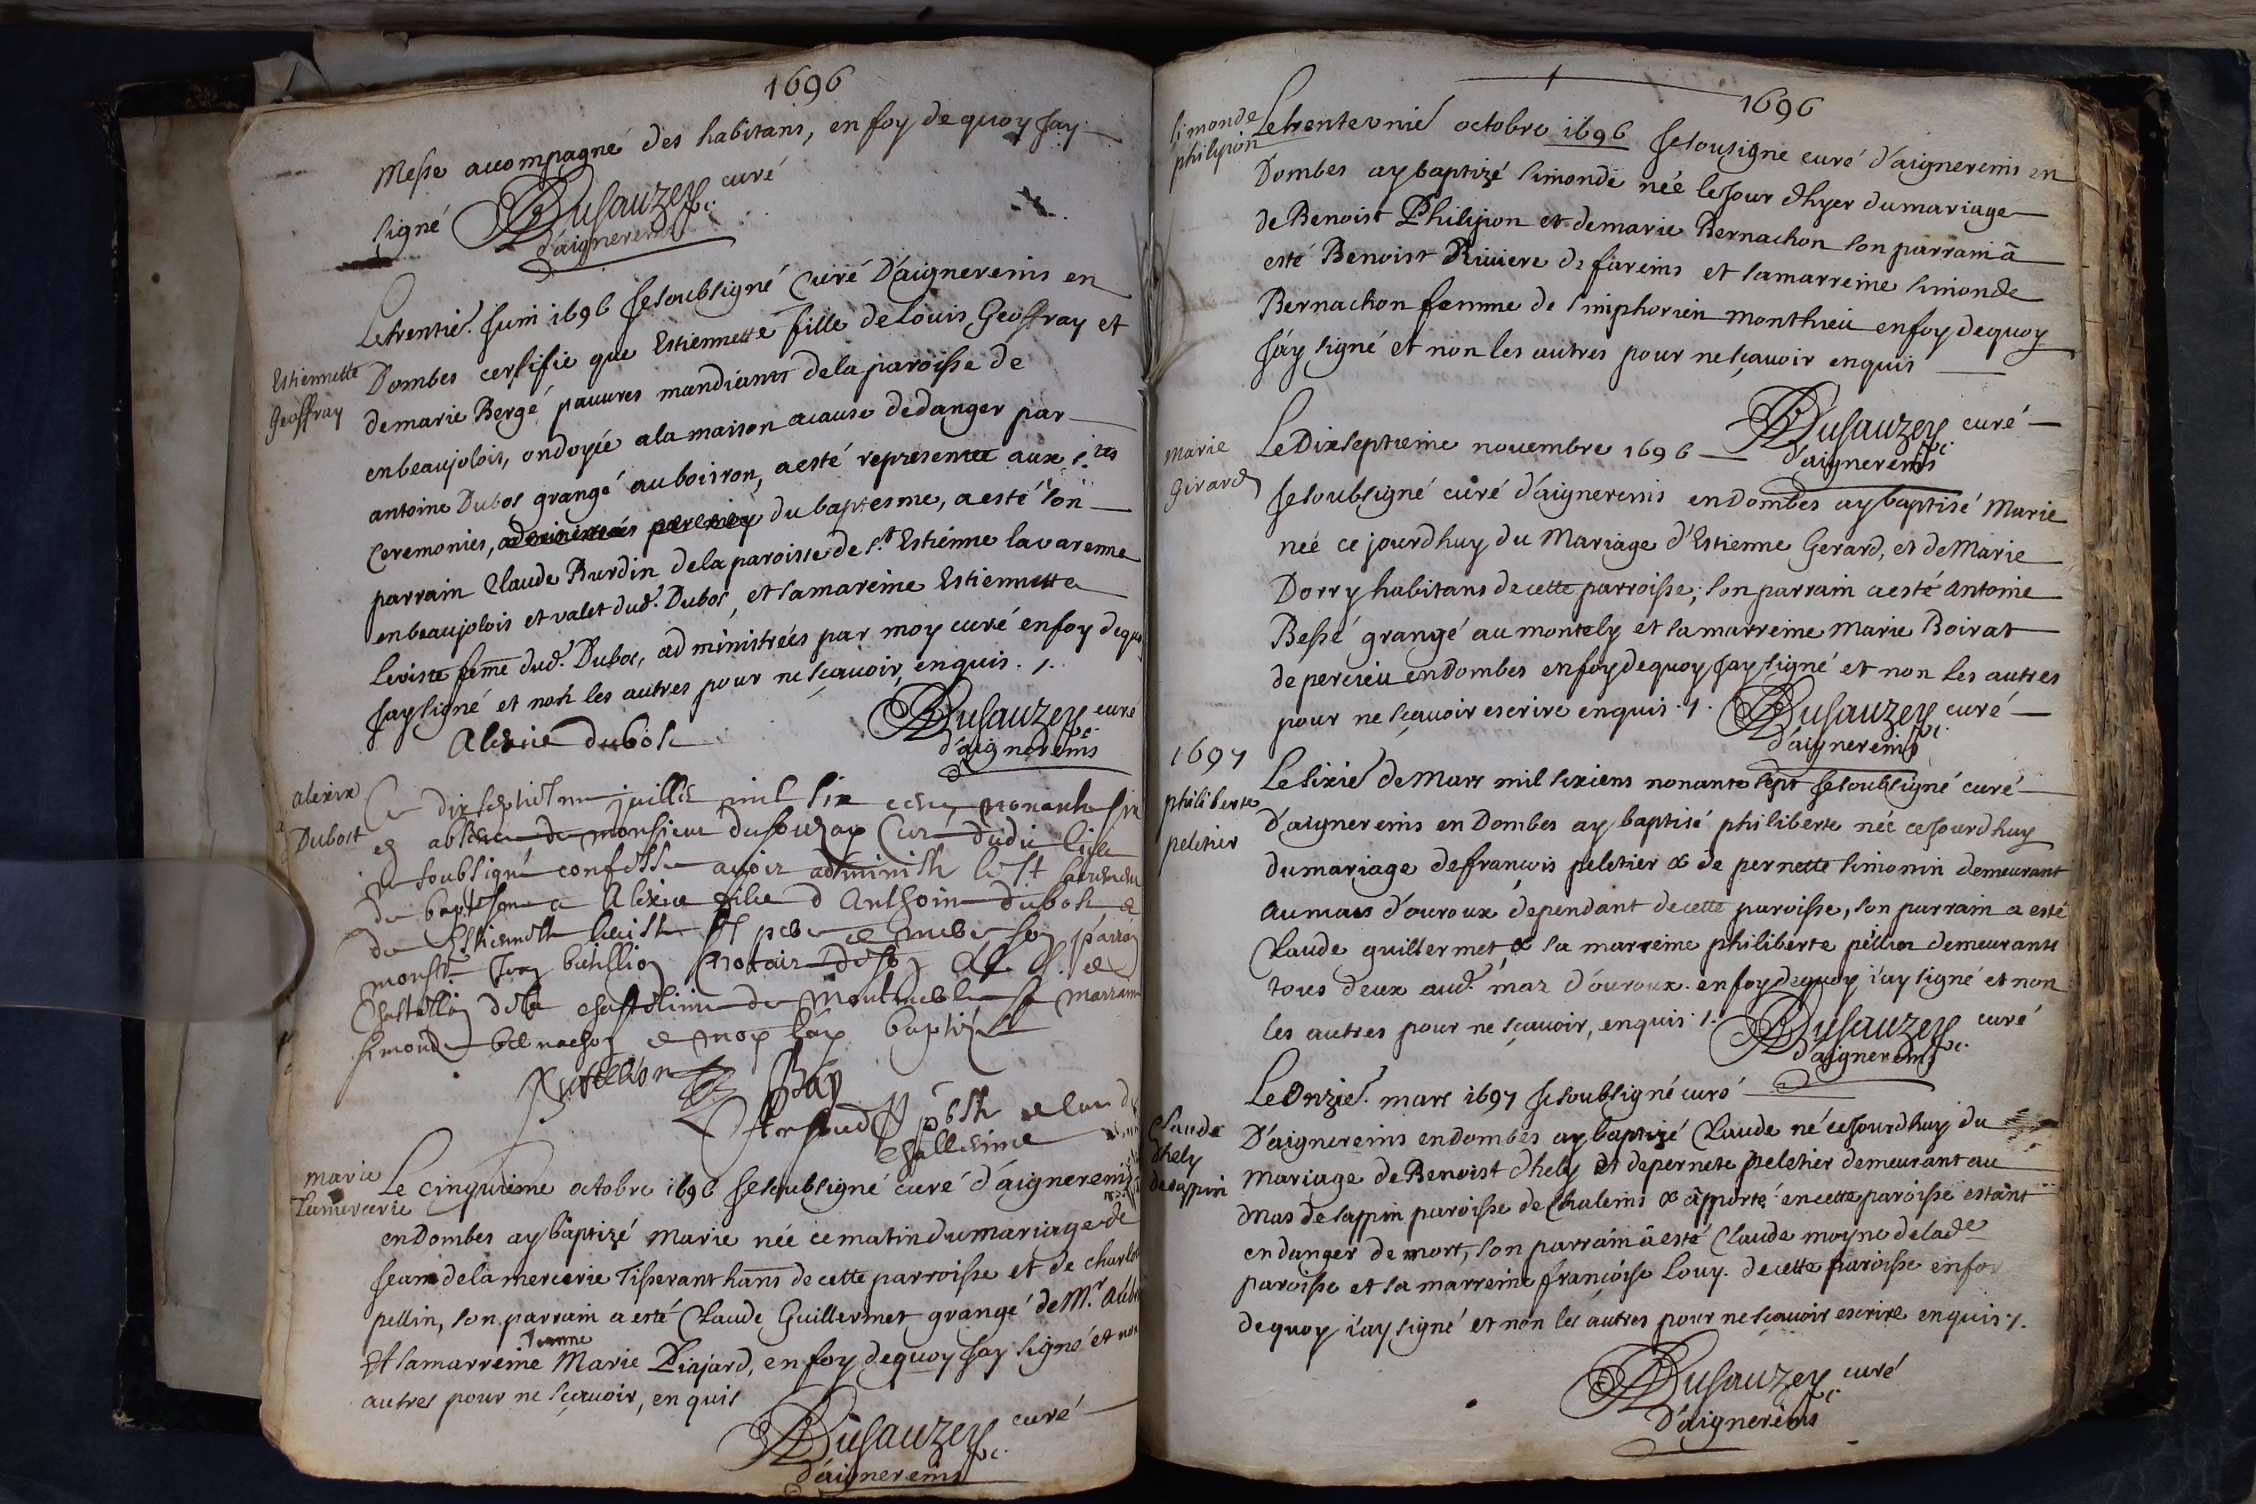 1696
Messe accompagné des habitans, en foy de quoy Jay
signé Dusauzey curé
d'aignereins
Estiennette
Geoffray
Le trentie. Juin 1696 Je soubsigné Curé D'aignereins en
Dombes certifie que Estiennette fille de Louis Geoffray et
de marie Bergé pauvres mandiants de la paroisse de
en beaujolois, ondoyée a la maison a cause de danger par
antoine Dubos grangé au boirron, a esté representée aux s.tes
Ceremonies, du baptesme, a esté son
parrain Claude Burdin de la paroisse de s.t Estienne la varenne
en beaujolois et valet dud. Dubos, et sa mareine Estiennette
Leviste feme dud. Dubos, administrées par moy curé en foy de quoy
Jay signé et non les autres pour ne sçavoir, enquis. /.
Dusauzey curé
d'aignereins
Alexie dubost
alexie
Dubost
Ce dixseptiesme juillie mil six cens nonante six
en absence de monsieur dusouzay Cure dudit lieu
Je soubsigné confesse avoir administré le st sacrement
du baptesme a Alexie fille d Anthoine dubost et
de Estiennette leviste ses pere et mere son parrain
monsr Jean butillion notaire
Chastellain de la chastelenie de Montmerle sa marraine
simonde bernachon et moy l'ay baptisé
Butillion Bay
marie
Lamercerie
Le cinquieme octobre 1696 Je soubsigné curé d'aignereins
en Dombes ay baptizé Marie née ce matin du mariage de
Jean de la mercerie Tisserant hans de cette parroisse et de charlot
pellin, son parrain a esté Claude Guillermet grangé de M.r
Et sa marreine Jeanne Marie Piajard, en foy de quoy Jay signé et non
autres pour ne sçavoir, enquis
Dusauzey curé
d'aignereins
1696
simonde
philipion
Le trente unie octobre 1696 Je sousigné curé d'aignereins en
Dombes ay baptizé simonde née le Jour d'hyer du mariage
de Benoist Philipion et de marie Bernachon son parrain a
esté Benoist Riviere de fareins et sa marreine simonde
Bernachon femme de simphorien monthieu en foy de quoy
J'ay signé et non les autres pour ne sçavoir enquis
Dusauzey curé
d'aignereins
marie
Girard
Le Dixseptieme novembre 1696
Je soubsigné curé d'aignereins en Dombes ay baptisé Marie
neé ce jourdhuy du Mariage d'Estienne Gerard, et de Marie
Dorry habitans de cette parroisse; son parrain a esté Antoine
Bessé grangé au montely et sa marreine Marie Boirat
de percieu en Dombes en foy de quoy Jay signé et non les autres
pour ne sçavoir escrire enquis ./.
Dusauzey curé
d'aignereins
1697
philiberte
peletier
Le sixie de Mars mil sixcens nonante sept Je soubsigné curé
d'aignereins en Dombes ay baptisé philiberte née ce Jourdhuy
du mariage de françois peletier & de pernette simonin demeurant
au mas d'ouroux dépendant de cette paroisse, son parrain a esté
Claude guillermet & sa marreine philiberte pellin demeurants
tous deux aud. mas d'ouroux. en foy de quoy i'ay signé et non
les autres pour ne sçavoir, enquis ./.
Dusauzey curé
d'aignereins
Claude
dhely
de sappin
Le Onzie. mars 1697 Je soubsigné curé
D'aignereins en dombes ay baptizé Claude né ce Jourdhuy du
mariage de Benoist d'hely et de pernete peletier demeurant au
Mas de sappin paroisse de Chaleins & apporté en cette paroisse estant
en danger de mort, son parrain a esté Claude moyne de lade
paroisse et sa marreine françoise Louy. de cette paroisse en foy
de quoy i'ay signé et non les autres pour ne sçavoir escrire enquis ./.
Dusauzey curé
d'aignereins